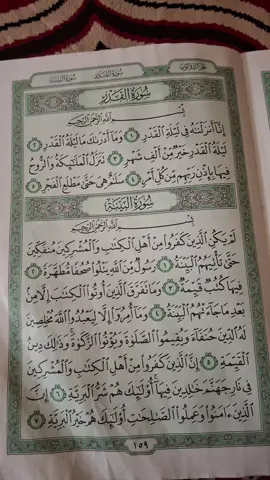 سُورَةُ القَدْرِ
بِسْمِ اللَّهِ الرَّحْمَٰنِ الرَّحِيمِ
إِنَّا أَنزَلْنَٰهُ فِي لَيْلَةِ ٱلْقَدْرِ ١ وَمَآ أَدْرَىٰكَ مَا لَيْلَةُ ٱلْقَدْرِ ٢
لَيْلَةُ ٱلْقَدْرِ خَيْرٌ مِّنْ أَلْفِ شَهْرٍ ٣ تَنَزَّلُ ٱلْمَلَٰٓئِكَةُ وَٱلرُّوحُ
فِيهَا بِإِذْنِ رَبِّهِم مِّن كُلِّ أَمْرٍ ٤ سَلَٰمٌ هِيَ حَتَّىٰ مَطْلَعِ ٱلْفَجْرِ ٥
سُورَةُ البَيِّنَةِ
بِسْمِ اللَّهِ الرَّحْمَٰنِ الرَّحِيمِ
لَمْ يَكُنِ ٱلَّذِينَ كَفَرُوا۟ مِنْ أَهْلِ ٱلْكِتَٰبِ وَٱلْمُشْرِكِينَ مُنفَكِّينَ
حَتَّىٰ تَأْتِيَهُمُ ٱلْبَيِّنَةُ ١ رَسُولٌ مِّنَ ٱللَّهِ يَتْلُوا۟ صُحُفًا مُّطَهَّرَةً ٢
فِيهَا كُتُبٌ قَيِّمَةٌ ٣ وَمَا تَفَرَّقَ ٱلَّذِينَ أُوتُوا۟ ٱلْكِتَٰبَ إِلَّا مِنۢ
بَعْدِ مَا جَآءَتْهُمُ ٱلْبَيِّنَةُ ٤ وَمَآ أُمِرُوٓا۟ إِلَّا لِيَعْبُدُوا۟ ٱللَّهَ مُخْلِصِينَ
لَهُ ٱلدِّينَ حُنَفَآءَ وَيُقِيمُوا۟ ٱلصَّلَوٰةَ وَيُؤْتُوا۟ ٱلزَّكَوٰةَ وَذَٰلِكَ دِينُ
ٱلْقَيِّمَةِ ٥ إِنَّ ٱلَّذِينَ كَفَرُوا۟ مِنْ أَهْلِ ٱلْكِتَٰبِ وَٱلْمُشْرِكِينَ
فِي نَارِ جَهَنَّمَ خَٰلِدِينَ فِيهَآ أُو۟لَٰٓئِكَ هُمْ شَرُّ ٱلْبَرِيَّةِ ٦ إِنَّ
ٱلَّذِينَ ءَامَنُوا۟ وَعَمِلُوا۟ ٱلصَّٰلِحَٰتِ أُو۟لَٰٓئِكَ هُمْ خَيْرُ ٱلْبَرِيَّةِ ٧
١٥٩